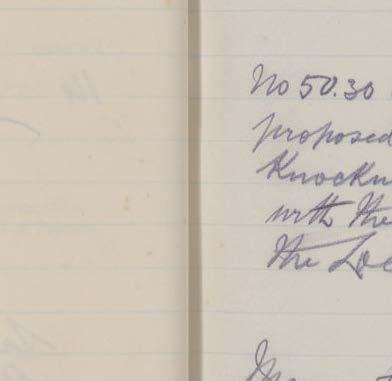 No 50.30
proposed
Knockn
with the
the Loc